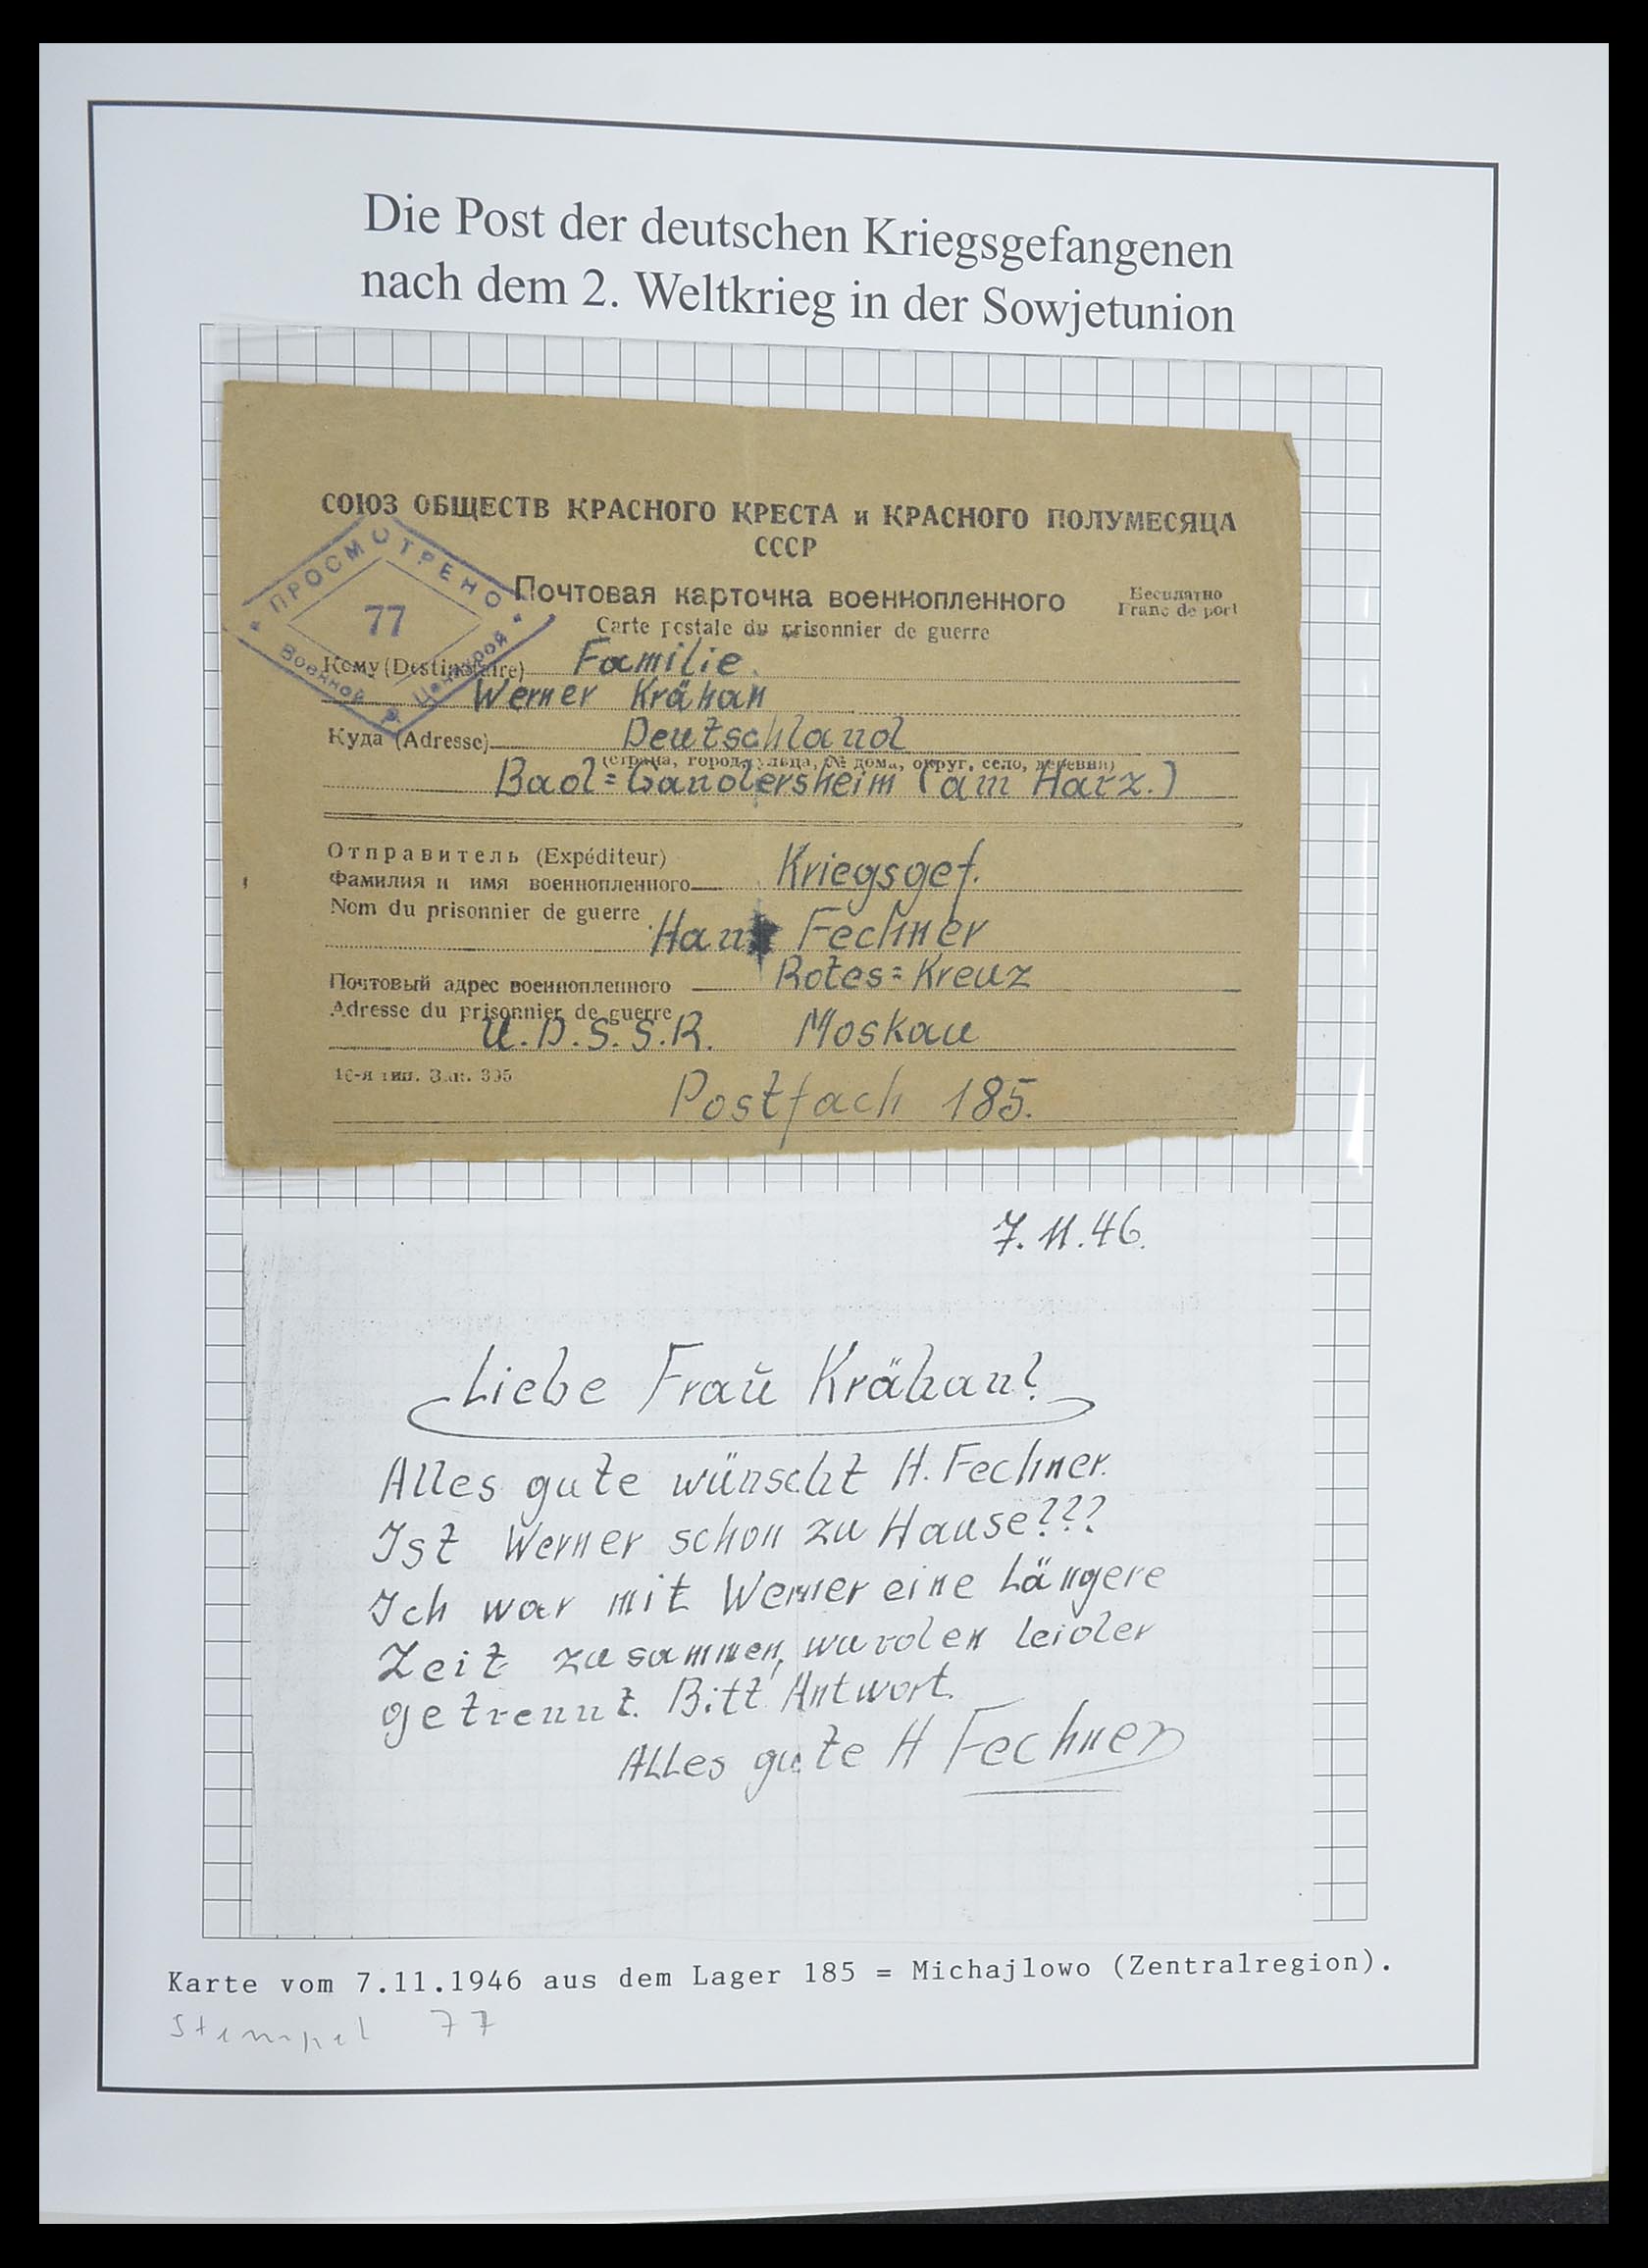 Die Post der deutschen Kriegsgefangenen
nach dem 2. Weltkrieg in der Sowjetunion
СОЮЗ ОБЩЕСТВ КРАСНОГО КРЕСТА и КРАСНОГО ПОЛУМЕСЯЦА
СССР
ПРОСМОТРЕНО
77
Военной Цензурой
Почтовая карточка военнопленного
Бесплатно
Carte postale du prisonnier de guerre
Franc de port
Кому (Destinataire) Familie
Werner Krähan
Куда (Adresse) Deutschland
(страна, город, улица, № дома, округ, село, деревни)
Bad=Gandersheim (am Harz.)
Отправитель (Expéditeur)
Фамилия и имя военнопленного Kriegsgef.
Nom du prisonnier de guerre
Hans Fechner
Почтовый адрес военнопленного Rotes=Kreuz
Adresse du prisonnier de guerre
U.d.S.S.R. Moskau
16-я тип. Зак. 395
Postfach 185.
7.11.46.
Liebe Fraŭ Krähan!
Alles gute wünscht H. Fechner.
Ist Werner schon zu Hause???
Ich war mit Werner eine Längere
Zeit zusammen, wurden leider
getrennt. Bitt Antwort.
Alles gute H Fechner
Karte vom 7.11.1946 aus dem Lager 185 = Michajlowo (Zentralregion).
Stempel 77